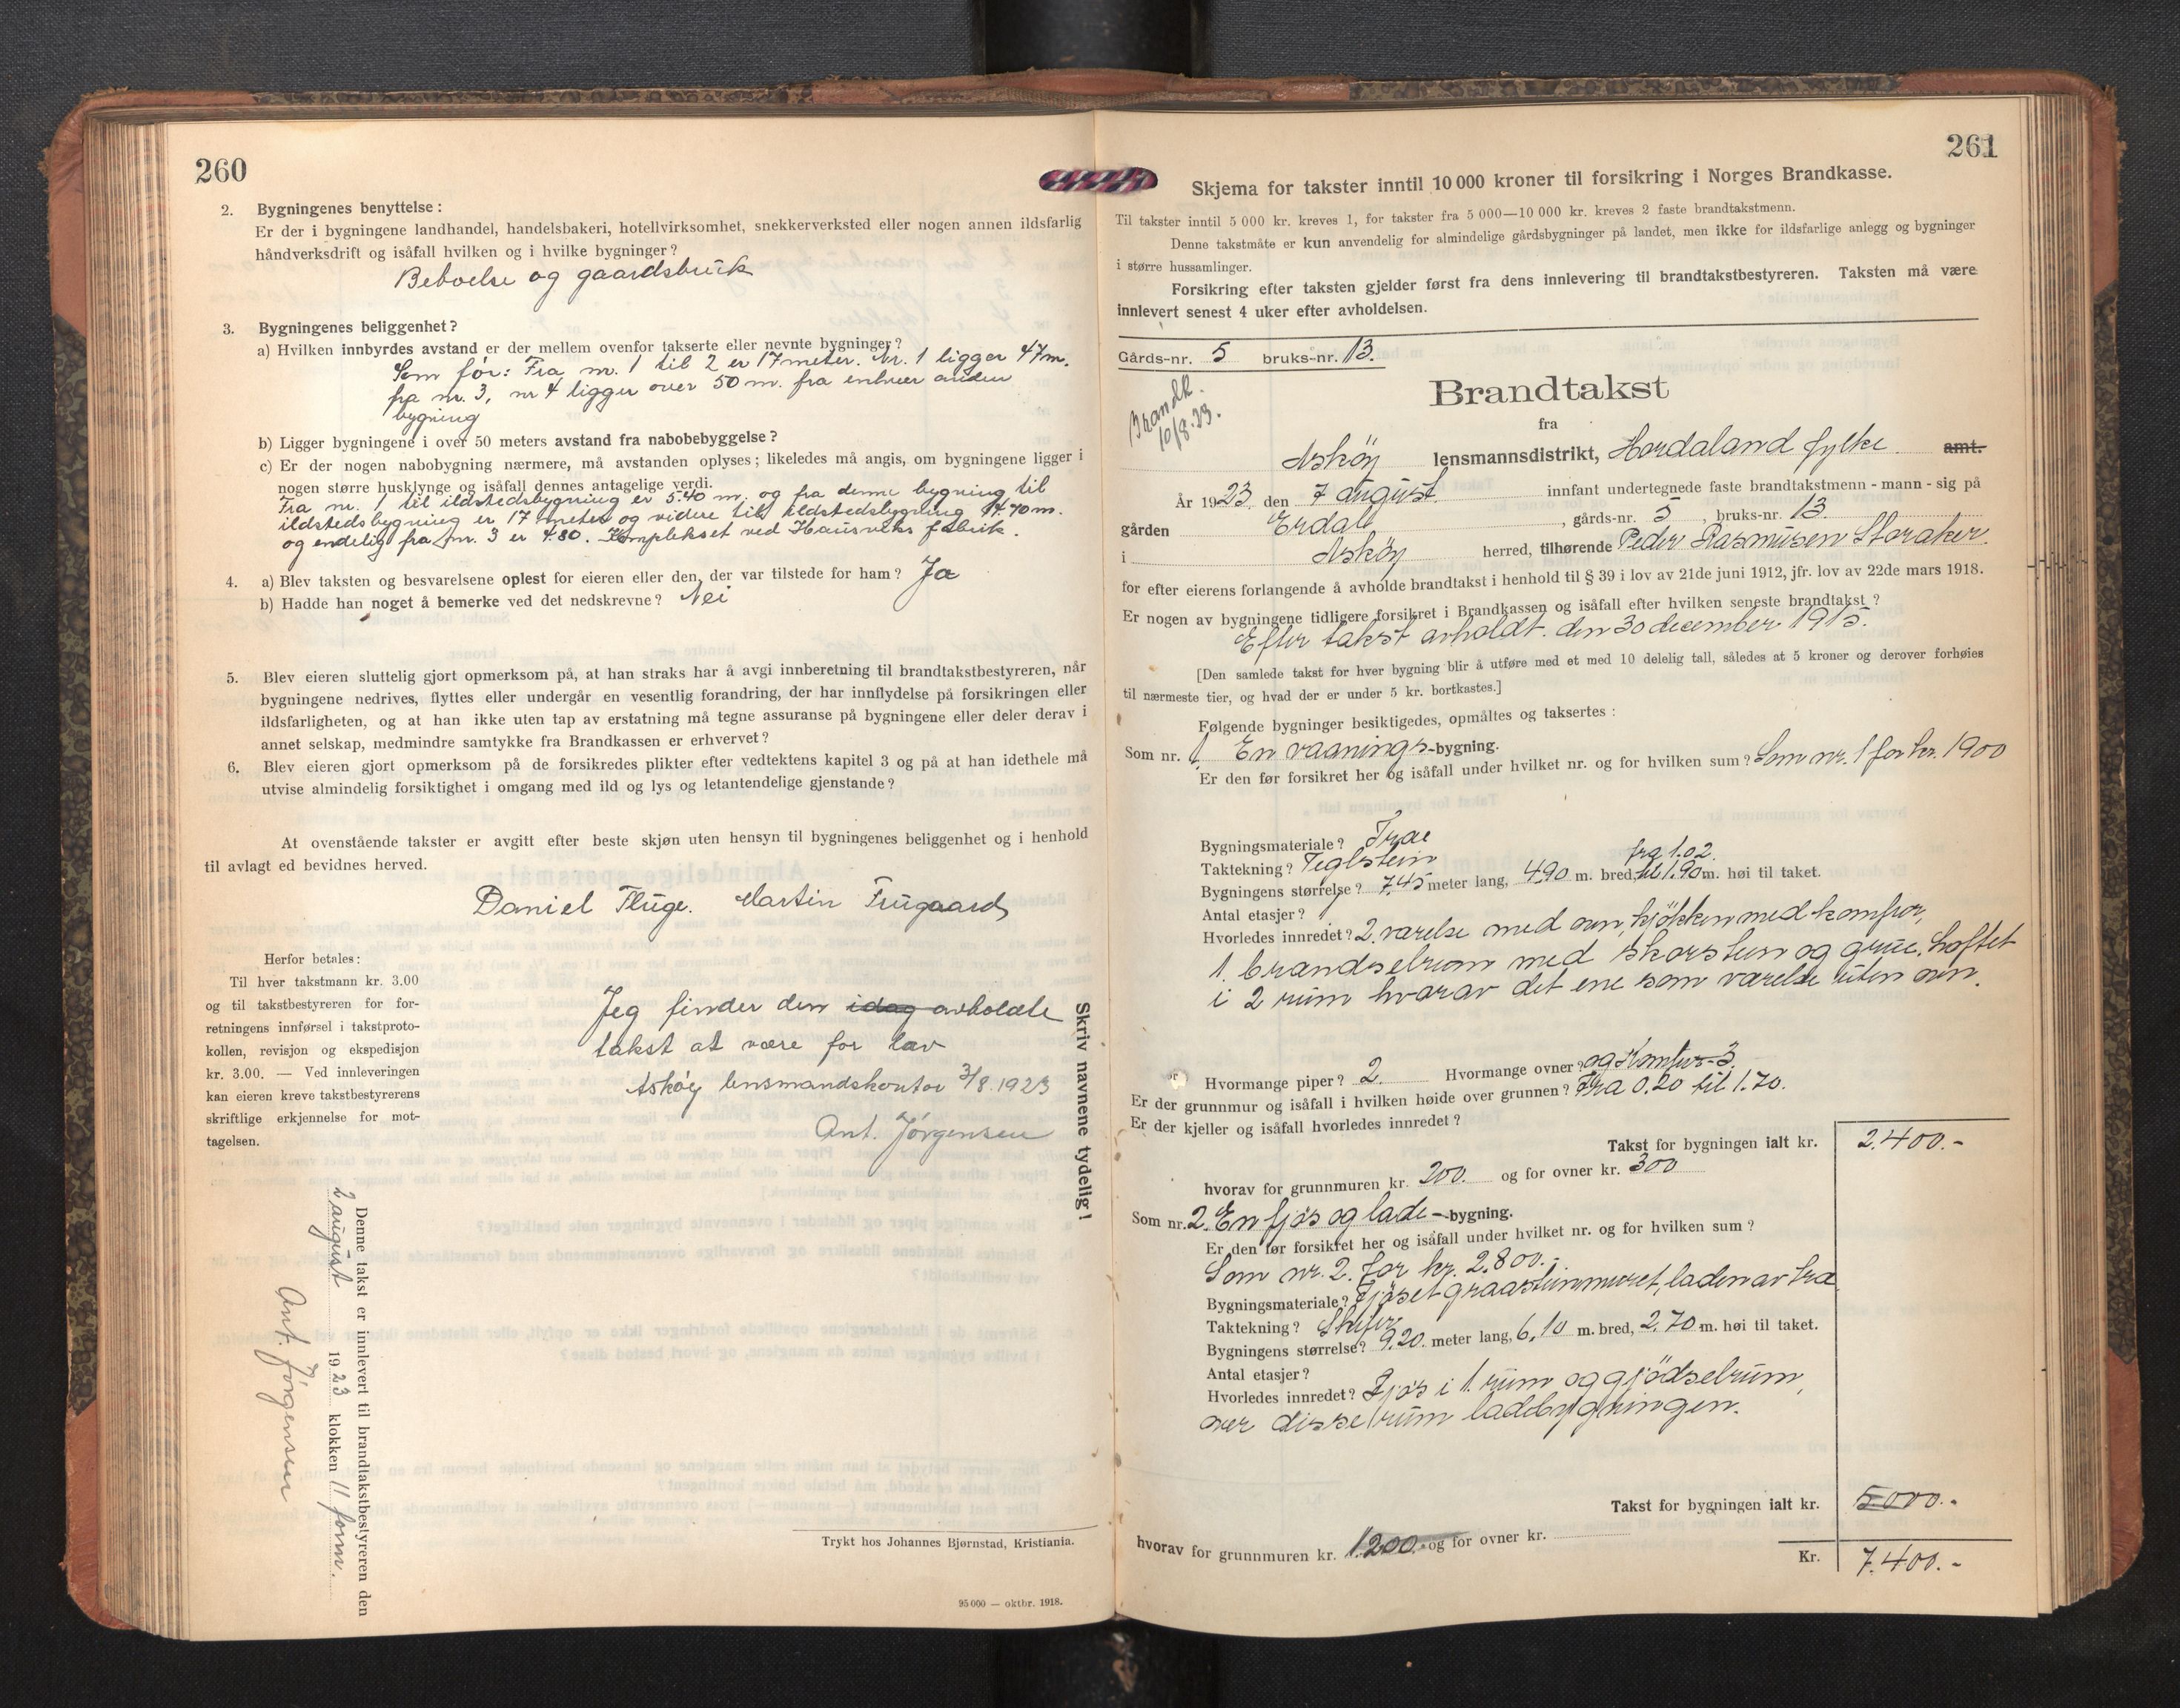 260
2. Bygningenes benyttelse :
Er der i bygningene landhandel, handelsbakeri, hotellvirksomhet, snekkerverksted eller nogen annen ildsfarlig
håndverksdrift og isåfall hvilken og i hvilke bygninger?
Beboelse og gaardsbruk
3. Bygningenes beliggenhet?
a) Hvilken innbyrdes avstand er der mellem ovenfor takserte eller nevnte bygninger?
Som før: Fra nr. 1 til 2 er 17 meter. Nr. 1 ligger 47 m.
fra nr. 3, nr 4 ligger over 50 m. fra enhver anden
bygning
b) Ligger bygningene i over 50 meters avstand fra nabobebyggelse?
c) Er der nogen nabobygning nærmere, må avstanden oplyses; likeledes må angis, om bygningene ligger i
nogen større husklynge og isåfall dennes antagelige verdi.
Fra nr. 1 til ildstedsbygning er 5.40 m. og fra denne bygning til
ildstedsbygning er 17 meter og videre til ildstedsbygning 14.70 m.
og endelig fra nr. 3 er 4.80. Komplekset ved Hausviks fabrik.
4. a) Blev taksten og besvarelsene oplest for eieren eller den, der var tilstede for ham? Ja
b) Hadde han noget å bemerke ved det nedskrevne? Nei
5. Blev eieren sluttelig gjort opmerksom på, at han straks har å avgi innberetning til brandtakstbestyreren, når
bygningene nedrives, flyttes eller undergår en vesentlig forandring, der har innflydelse på forsikringen eller
ildsfarligheten, og at han ikke uten tap av erstatning må tegne assuranse på bygningene eller deler derav i
annet selskap, medmindre samtykke fra Brandkassen er erhvervet?
6. Blev eieren gjort opmerksom på de forsikredes plikter efter vedtektens kapitel 3 og på at han idethele må
utvise almindelig forsiktighet i omgang med ild og lys og letantendelige gjenstande?
At ovenstående takster er avgitt efter beste skjøn uten hensyn til bygningenes beliggenhet og i henhold
til avlagt ed bevidnes herved.
Daniel Fluge. Martin Trugaard
Herfor betales:
Til hver takstmann kr. 3.00
og til takstbestyreren for for-
retningens innførsel i takstproto-
kollen, revisjon og ekspedisjon
kr. 3.00. — Ved innleveringen
kan eieren kreve takstbestyrerens
skriftlige erkjennelse for mot-
tagelsen.
Jeg finder den idag avholdte
takst at være for lav
Askøy lensmandskontor 3/8.1923
Ant. Jørgensen
Skriv navnene tydelig!
Denne takst er innlevert til brandtakstbestyreren den
2 august 1923 klokken 11 form.
Ant. Jörgensen
Trykt hos Johannes Bjørnstad, Kristiania.
95 000 — oktbr. 1918.
261
Skjema for takster inntil 10 000 kroner til forsikring i Norges Brandkasse.
Til takster inntil 5 000 kr. kreves 1, for takster fra 5 000—10 000 kr. kreves 2 faste brandtakstmenn.
Denne takstmåte er kun anvendelig for almindelige gårdsbygninger på landet, men ikke for ildsfarlige anlegg og bygninger
i større hussamlinger.
Forsikring efter taksten gjelder først fra dens innlevering til brandtakstbestyreren. Taksten må være
innlevert senest 4 uker efter avholdelsen.
Gårds-nr. 5 bruks-nr. 13.
Brandk.
10/8.23.
Brandtakst
fra
Askøy lensmannsdistrikt, Hordaland fylke amt.
År 1923. den 7 august innfant undertegnede faste brandtakstmenn - mann - sig på
gården Erdal, gårds-nr. 5, bruks-nr. 13.
i Askøy herred, tilhørende Peder Rasmusen Storaker.
for efter eierens forlangende å avholde brandtakst i henhold til § 39 i lov av 21de juni 1912, jfr. lov av 22de mars 1918.
Er nogen av bygningene tidligere forsikret i Brandkassen og isåfall efter hvilken seneste brandtakst?
Efter takst avholdt. den 30 december 1915.
[Den samlede takst for hver bygning blir å utføre med et med 10 delelig tall, således at 5 kroner og derover forhøies
til nærmeste tier, og hvad der er under 5 kr. bortkastes.]
Følgende bygninger besiktigedes, opmåltes og taksertes :
Som nr. 1. En vaanings-bygning.
Er den før forsikret her og isåfall under hvilket nr. og for hvilken sum? Som nr. 1 for kr. 1900
Bygningsmateriale? Træ
Taktekning? Teglstein
fra 1.02.
Bygningens størrelse? 7.45 meter lang, 4.90 m. bred, til 1.90 m. høi til taket.
Antal etasjer? 1
Hvorledes innredet? 2. værelse med ovn, kjökken med komfur,
1. brandselrum med skorsten og grue. Loftet
i 2 rum hvorav det ene som værelse uten ovn.
Hvormange piper? 2. Hvormange ovner? og Komfur - 3.
Er der grunnmur og isåfall i hvilken høide over grunnen? Fra 0.20 til 1.70.
Er der kjeller og isåfall hvorledes innredet?
Takst for bygningen ialt kr. 2.400.-
hvorav for grunnmuren kr. 200. og for ovner kr. 300
Som nr. 2. En fjøs og lade-bygning.
Er den før forsikret her og isåfall under hvilket nr. og for hvilken sum?
Som nr. 2. for kr. 2.800.-
Bygningsmateriale? Fjöset graastensmuret, laden av træ
Taktekning? Skifer
Bygningens størrelse? 9.20. meter lang, 6,10 m. bred, 2.70 m. høi til taket.
Antal etasjer?
Hvorledes innredet? Fjøs i 1. rum og gjödselrum,
over disse rum ladebygningen.
Takst for bygningen ialt kr. 5000.-
hvorav for grunnmuren kr. 1.200.- og for ovner kr.
Kr. 7.400.-